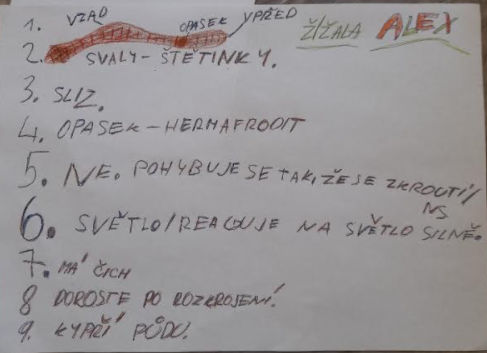 1. VZAD OPASEK VPŘED ŽÍŽALA ALEX
2. SVALY - ŠTĚTINKY.
3. SLIZ.
4. OPASEK - HERMAFRODIT
5. NE. POHYBUJE SE TAK, ŽE SE ZKROUTÍ/
NS
6. SVĚTLO/REAGUJE NA SVĚTLO SILNĚ.
7. MÁ ČICH
8 DOROSTE PO ROZKROJENÍ.
9. KYPŘÍ PŮDU.